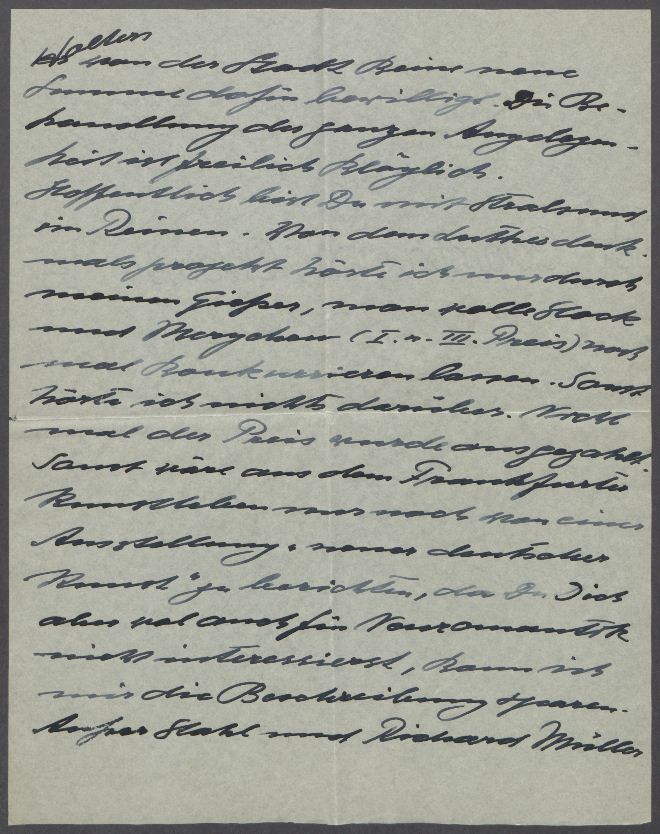 von der Stadt keine neue
Summe dafür bewilligt. Die Be-
handlung der ganzen Angelegen-
heit ist freilich kläglich.
Hoffentlich bist Du mit Stralsund
im Reinen. Von dem Luther denk-
mals projekt hörte ich nur durch
meinen Gießer, man wolle Stock
und (I. u. III. Preis) noch
mal konkurrieren lassen. Sonst
hörte ich nichts darüber. Noch
mal der Preis wurde ausgezahlt.
Sonst wäre aus dem Frankfurter
Kunstleben nur noch von einer
Ausstellung „neuer deutscher
Kunst" zu berichten, da Du Dich
aber wol auch für Neuromantik
nicht interessierst, kann ich
mir die Beschreibung sparen.
Außer Stahl und Richard Müller